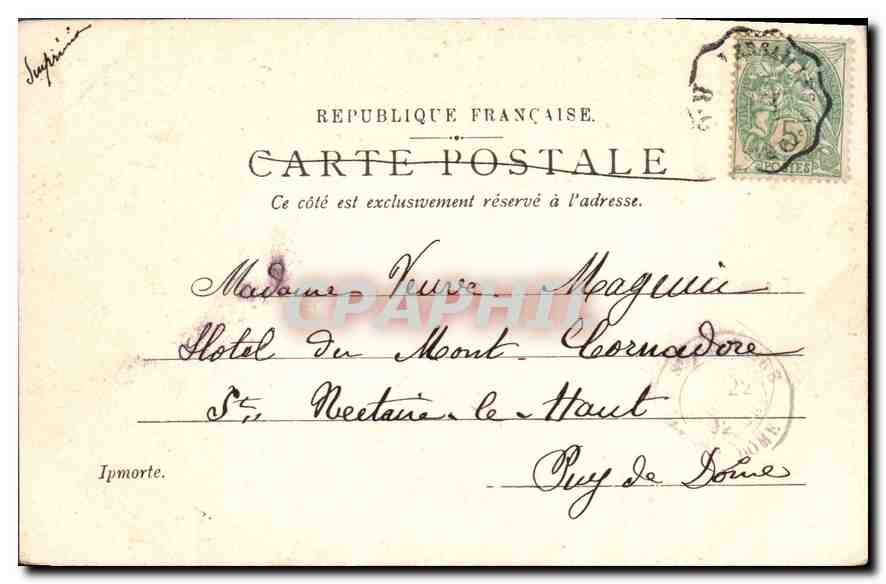 Imprimé
REPUBLIQUE FRANÇAISE.
CARTE POSTALE
Ce côté est exclusivement réservé à l'adresse.
5
POSTES
Madame Veuve Magnin
CPAPHIL
Hotel du Mont Cornadore
St. Nectaire-le-Haut
22
Ipmorte.
Puy de Dôme